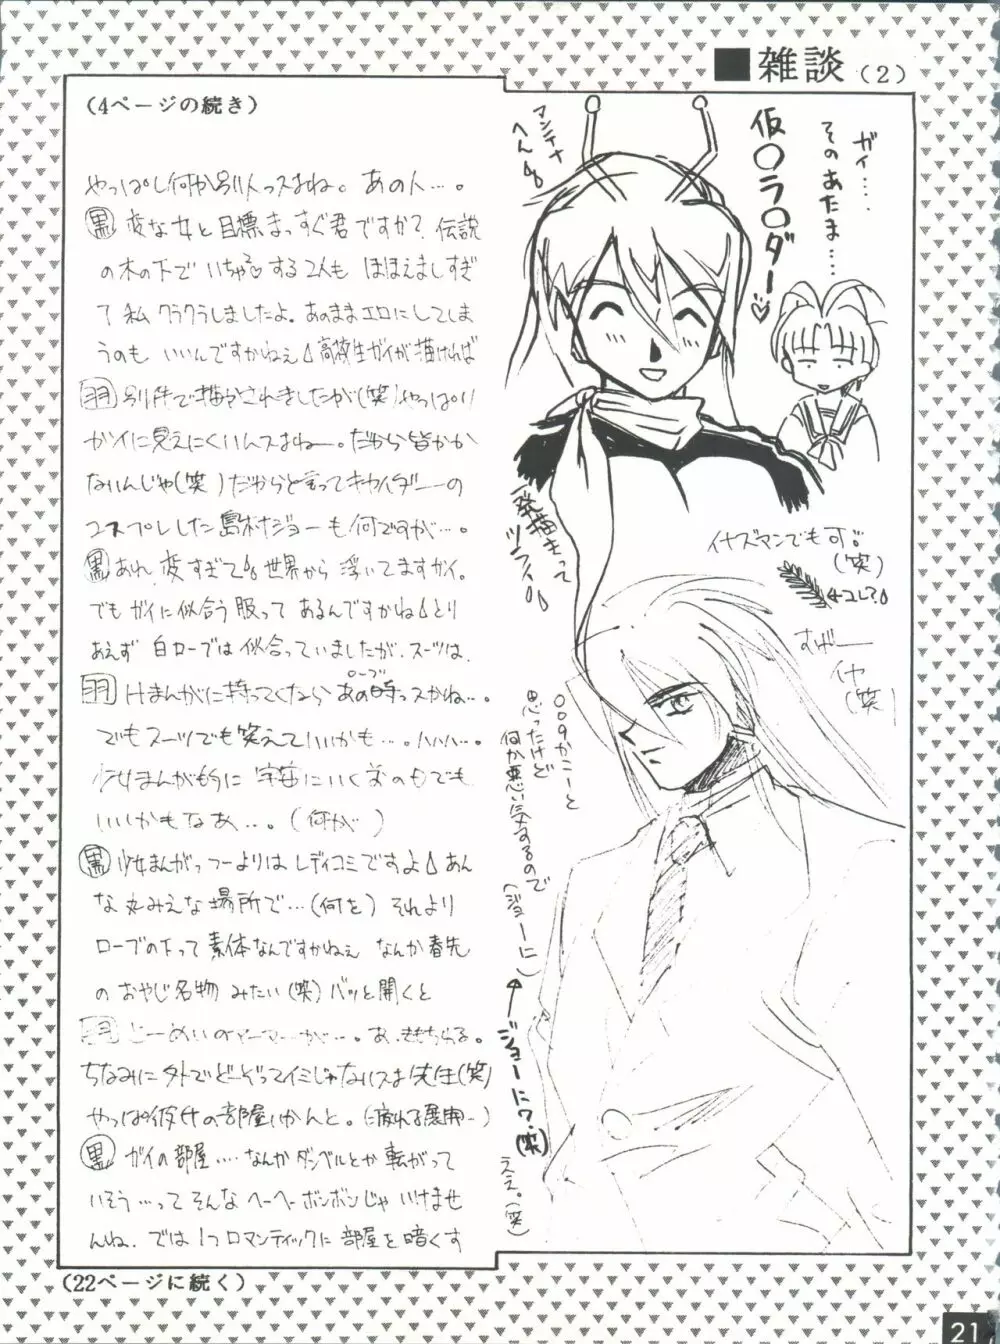 ■雑談(2)
(4ページの続き)
やっぱし何か別人っスよね。あの人…。
黒 変な女と目標まっすぐ君ですか?伝説
の木の下でいちゃつする2人もほほえましすぎ
て私クラクラしましたよ。あのままエロにしてしま
うのもいいんですかねぇ 高校生ガイが描ければ
羽 別件で描かされましたが(笑)やっぱり
ガイに見えにくいんスよねー。だから皆かか
ないんじゃ(笑)だからと言ってキカイダーの
コスプレした島村ジョーも何ですが…。
黒 あれ、変すぎて 世界から浮いてますガイ。
でもガイに似合う服ってあるんですかね とり
あえず白ローブでは似合っていましたが、スーツは、
でもスーツでも笑えていいかも…。ハハハ…。
少女まんがもうに宇宙にいく
いいかもなあ…。(何が)
黒 少女まんがっつーよりはレディコミですよ あん
な丸みえな場所で…(何を)それより
ローブの下って素体なんですかねぇ なんか春先
のおやじ名物みたい(笑)バッと開くと
ちなみに外でどーぞってイミじゃないスよ先生(笑)
黒 ガイの部屋….なんかダンベルとか転がって
いそう…ってそんなヘーヘーボンボンじゃいけませ
んね。では1つロマンティックに部屋を暗くす
(22ページに続く)
マンテナ
へん
仮○ラ○ダー
ガイ….
そのあたま….
一発描きって
ツライ
イナズマンでも可
(笑)
←コレ?
すげー
イヤ
(笑)
009かにーと
思ったけど
何か悪い気するので
(ジョーに)
←ジョーに?(笑)
ええ。(笑)
21